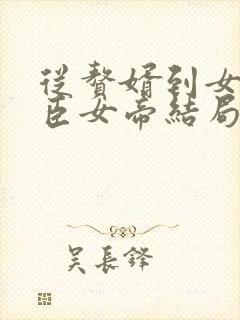 從贅婿到女
臣女帝結局
吳長鋒